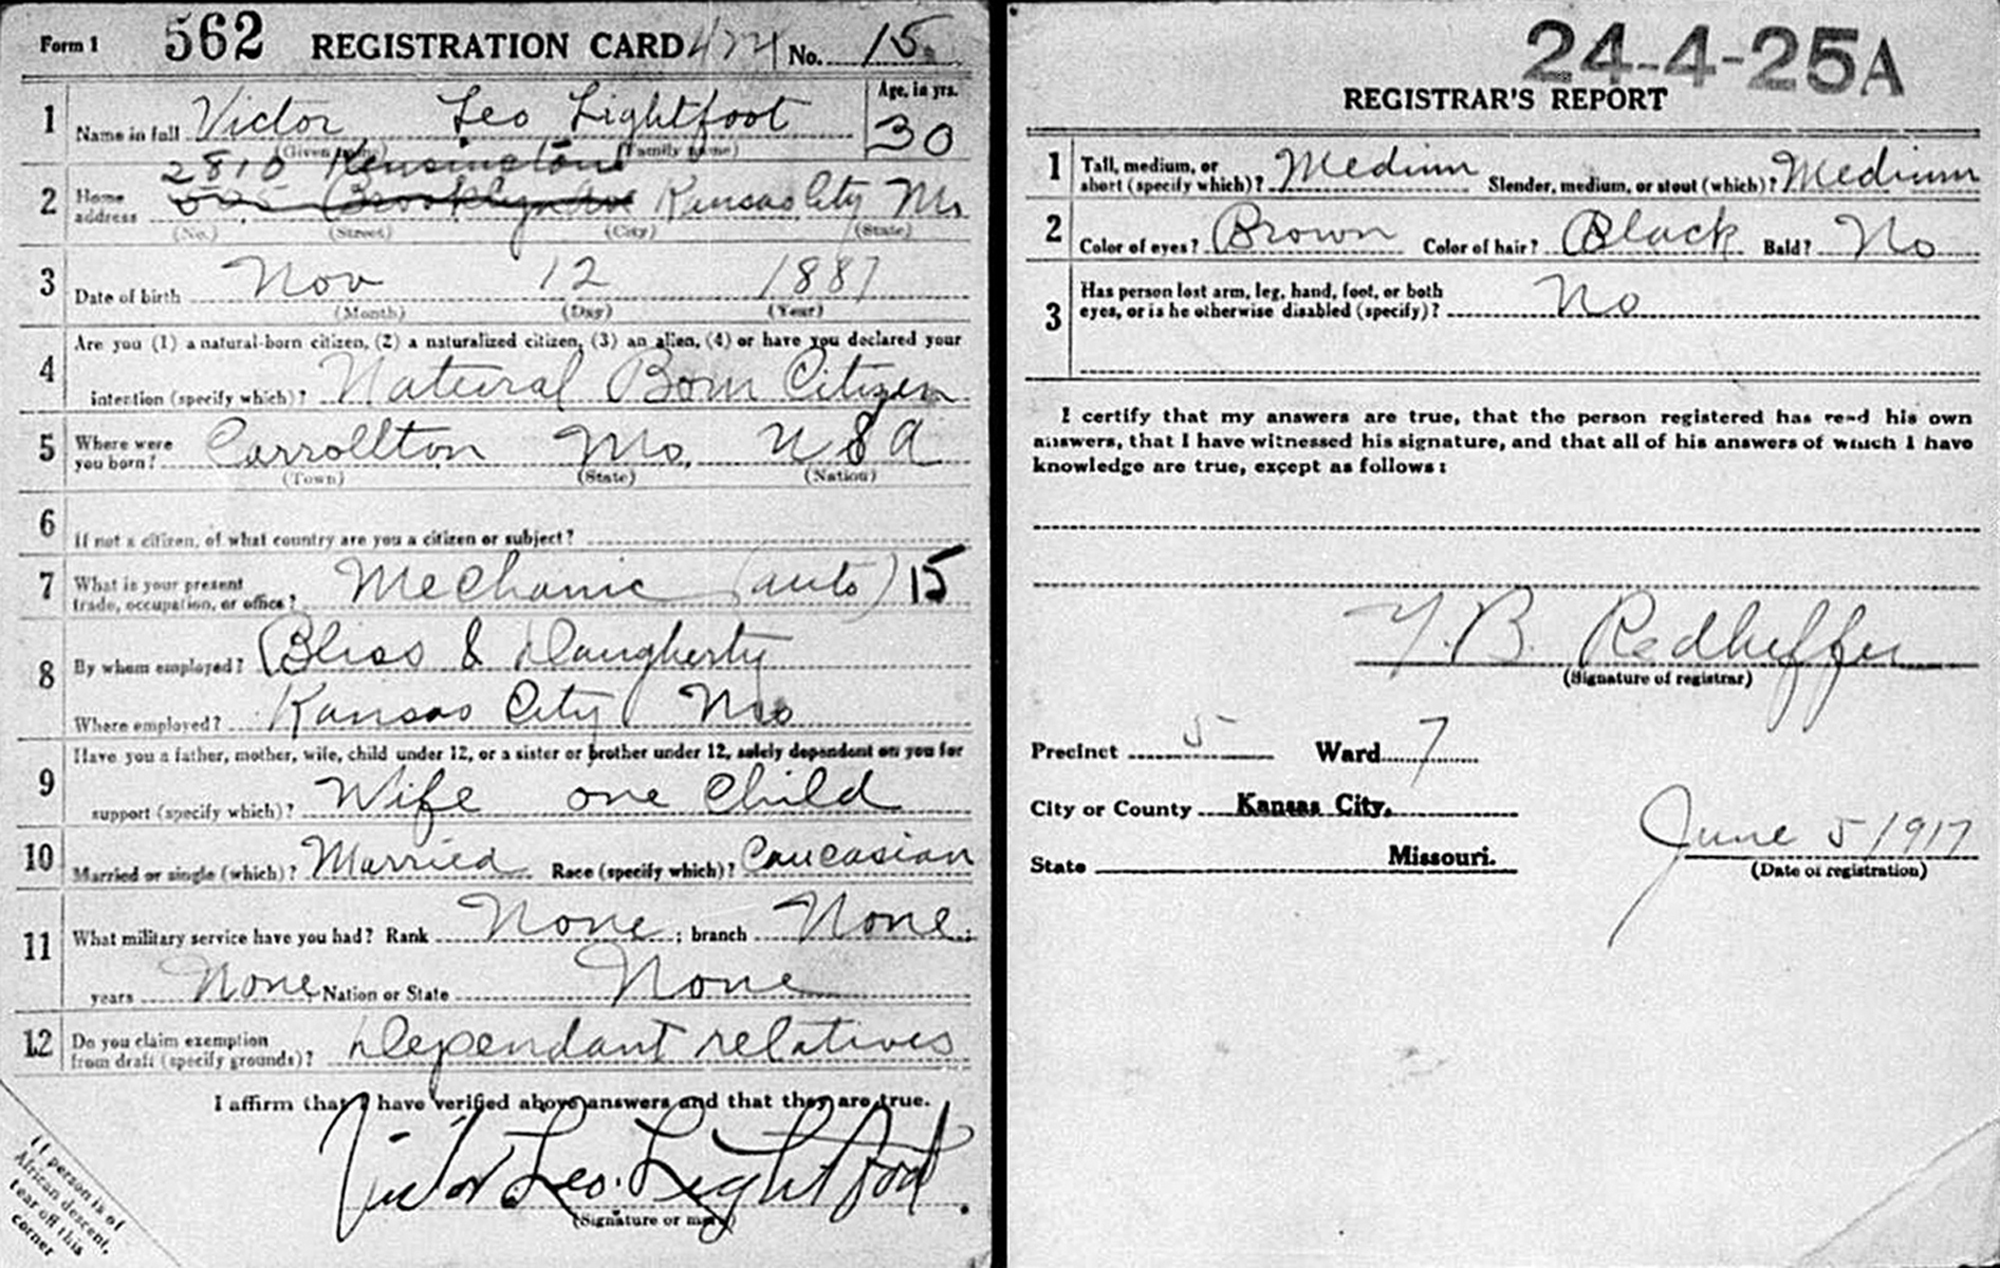 Form 1 562 REGISTRATION CARD No. 15
1 Name in full Victor Leo Lightfoot Age, in yrs. 30
(Given name) (Family name)
2810 Kensington
2 Home address Brooklyn Ave Kansas City Mo
(No.) (Street) (City) (State)
3 Date of birth Nov 12 1887
(Month) (Day) (Year)
4 Are you (1) a natural-born citizen, (2) a naturalized citizen, (3) an alien, (4) or have you declared your
intention (specify which)? Natural Born Citizen
5 Where were you born? Carrollton Mo. USA
(Town) (State) (Nation)
6 If not a citizen, of what country are you a citizen or subject?
7 What is your present trade, occupation, or office? Mechanic (auto) 15
8 By whom employed? Bliss & Daugherty
Where employed? Kansas City Mo
9 Have you a father, mother, wife, child under 12, or a sister or brother under 12, solely dependent on you for
support (specify which)? Wife one Child
10 Married or single (which)? Married Race (specify which)? Caucasian
11 What military service have you had? Rank None ; branch None ;
years None Nation or State None
12 Do you claim exemption from draft (specify grounds)? Dependant relatives
I affirm that I have verified above answers and that they are true.
Victor Leo. Lightfoot
(Signature or mark)
If person is of
African descent,
tear off this
corner
24-4-25A
REGISTRAR'S REPORT
1 Tall, medium, or short (specify which)? Medium Slender, medium, or stout (which)? Medium
2 Color of eyes? Brown Color of hair? Black Bald? No
3 Has person lost arm, leg, hand, foot, or both
eyes, or is he otherwise disabled (specify)? No
I certify that my answers are true, that the person registered has read his own
answers, that I have witnessed his signature, and that all of his answers of which I have
knowledge are true, except as follows:
Y. B. Redheffer
(Signature of registrar)
Precinct 5 Ward 7
City or County Kansas City.
State Missouri.
June 5 1917
(Date of registration)